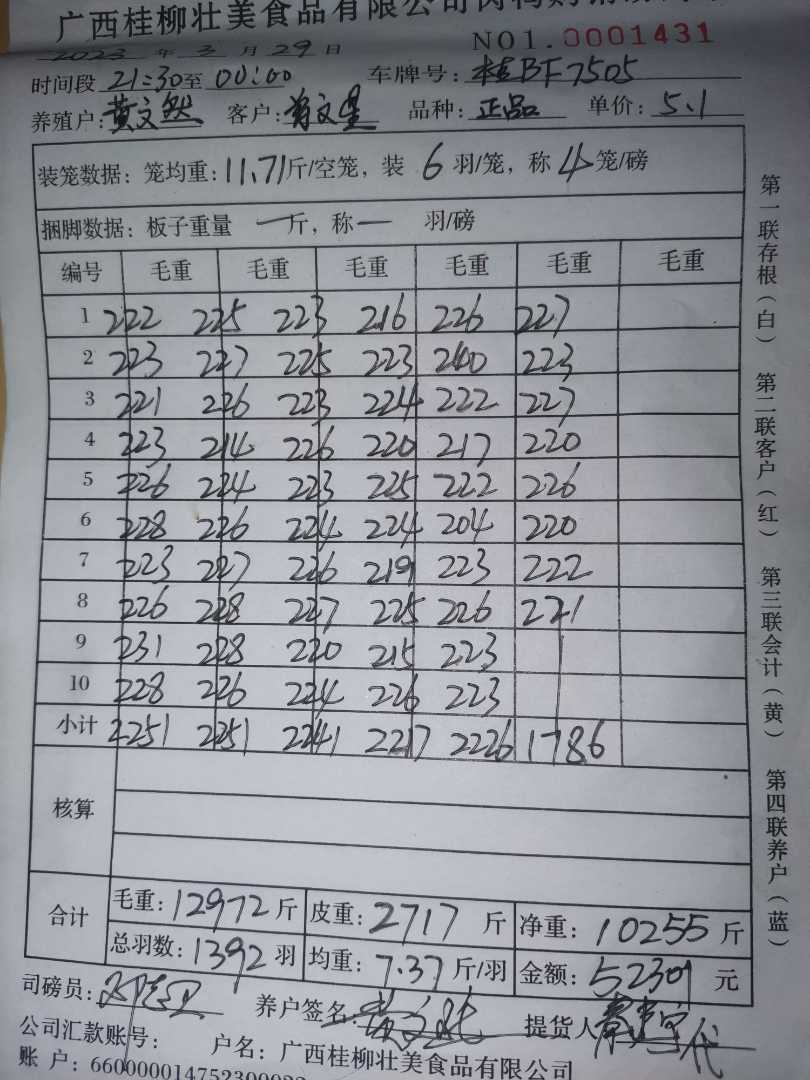 广西桂柳壮美食品有限公司肉鸭购销
2023年3月29日 NO1.0001431
时间段 21:30至 00:00 车牌号:桂BF7505
养殖户:黄文然 客户: 品种:正品 单价:5.1
装笼数据:笼均重:11.71斤/空笼,装 6 羽/笼,称 4 笼/磅
捆脚数据:板子重量 一 斤,称 一 羽/磅
编号 毛重 毛重 毛重 毛重 毛重 毛重
1 222 225 223 216 226 227
2 223 227 225 223 240 223
3 221 226 223 224 222 227
4 223 214 226 220 217 220
5 226 224 223 225 222 226
6 228 226 224 224 204 220
7 223 227 226 219 223 222
8 226 228 227 225 226 221
9 231 228 220 215 223
10 228 226 224 226 223
小计 2251 2251 2241 2217 2226 1786
核算
合计 毛重:12972斤 皮重:2717 斤 净重:10255斤
总羽数:1392羽 均重:7.37斤/羽 金额:52301元
司磅员: 养户签名: 提货人 代
公司汇款账号: 户名:广西桂柳壮美食品有限公司
账 户:660000014752300022
第一联存根(白) 第二联客户(红) 第三联会计(黄) 第四联养户(蓝)